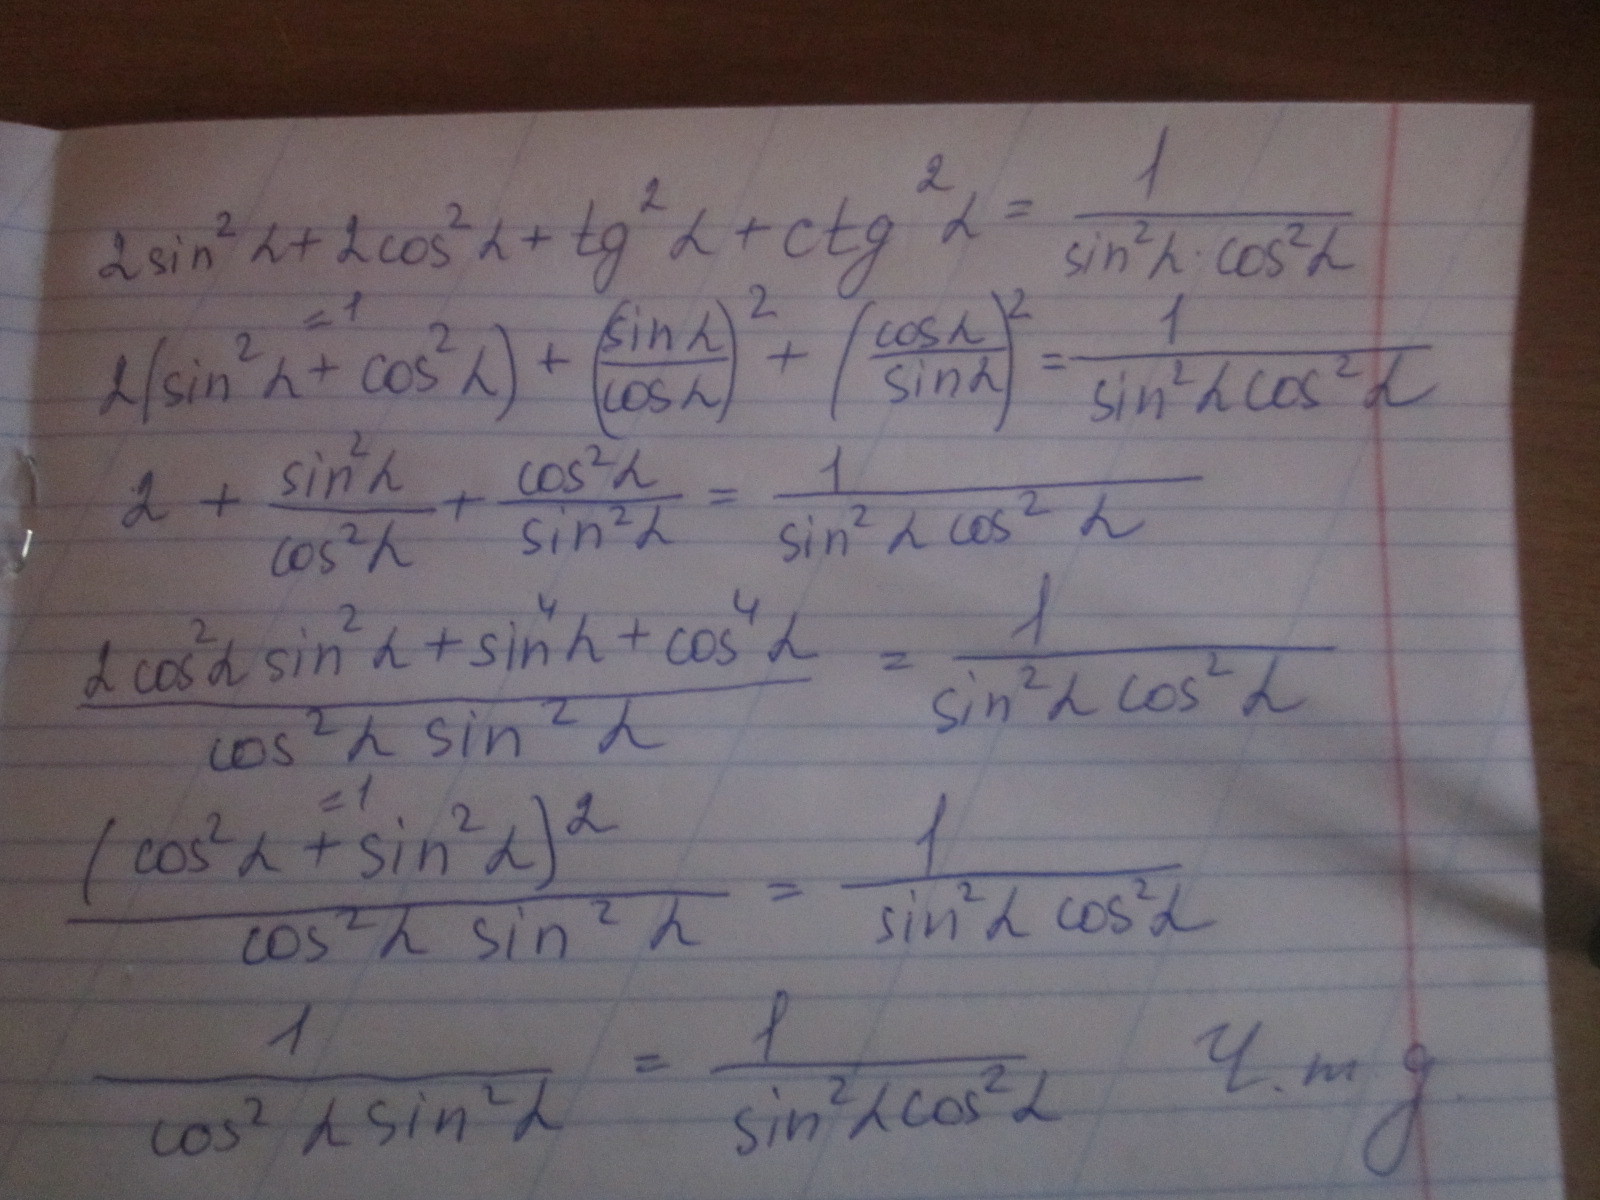 2sin²α + 2cos²α + tg²α + ctg²α = 1/(sin²α · cos²α)
=1
2(sin²α + cos²α) + (sinα/cosα)² + (cosα/sinα)² = 1/(sin²α cos²α)
2 + sin²α/cos²α + cos²α/sin²α = 1/(sin²α cos²α)
(2cos²α sin²α + sin⁴α + cos⁴α)/(cos²α sin²α) = 1/(sin²α cos²α)
=1
(cos²α + sin²α)²/(cos²α sin²α) = 1/(sin²α cos²α)
1/(cos²α sin²α) = 1/(sin²α cos²α) Ч.т.д.